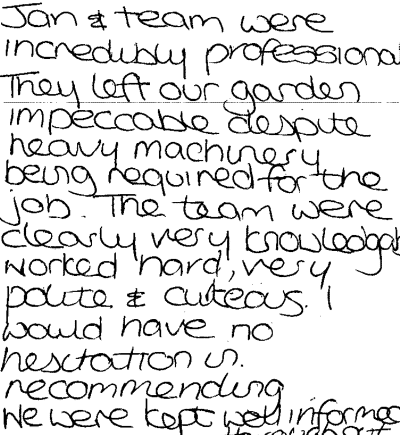 Jan & team were
incredubly professional
They left our garden
impeccable despite
heavy machinery
being required for the
job. The team were
clearly very knowledgab
worked hard, very
polite & cuteous. I
would have no
hesctation in.
recommending
We were kept well informed